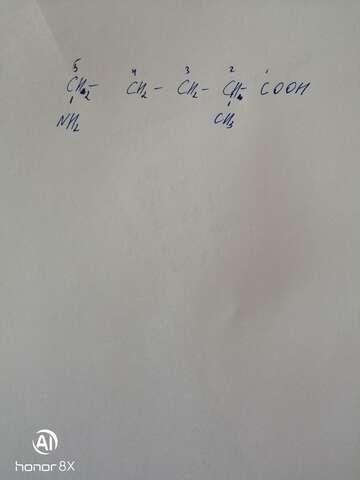 5 4 3 2 1
CH2- CH2 - CH2 - CH - COOH
NH2 CH3
AI
honor 8X